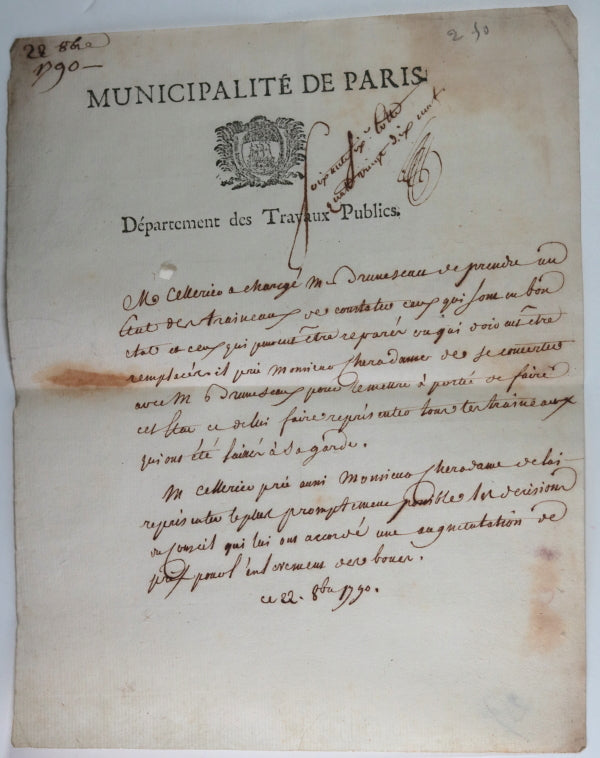 22 8bre
1790 —
2 10
MUNICIPALITÉ DE PARIS.
soixante six
quatre vingt dix neuf.
Département des Travaux Publics.
M. Cellerier a chargé M. Bruneseau de prendre un
Etat des traineaux de constater ceux qui sont en bon
etat et ceux qui peuvent être reparés ou qui doivent être
remplacés. il prie Monsieur Cheradame de se concerter
avec M. Bruneseaux pour le mettre à portée de faire
cet Etat et de lui faire representer tous les traineaux
qui ont été laissés à sa garde.
M Cellerier prie aussi Monsieur Cheradame de lui
representer le plus promptement possible les decisions
du Conseil qui lui ont accordé une augmentation de
prix pour l'enlevement des boues.
ce 22. 8bre 1790.